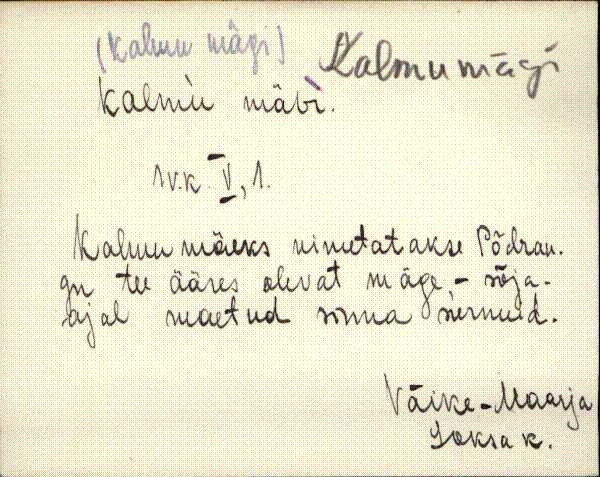 (Kalmu mägi) Kalmumägi
Kalmu mäbi.
IV.K. V, 1.
Kalmu mäeks nimetatakse Põdran-
gu tee ääres olevat mäge, - sõja-
ajal maetud sinna
Väike-Maarja
Loksa k.